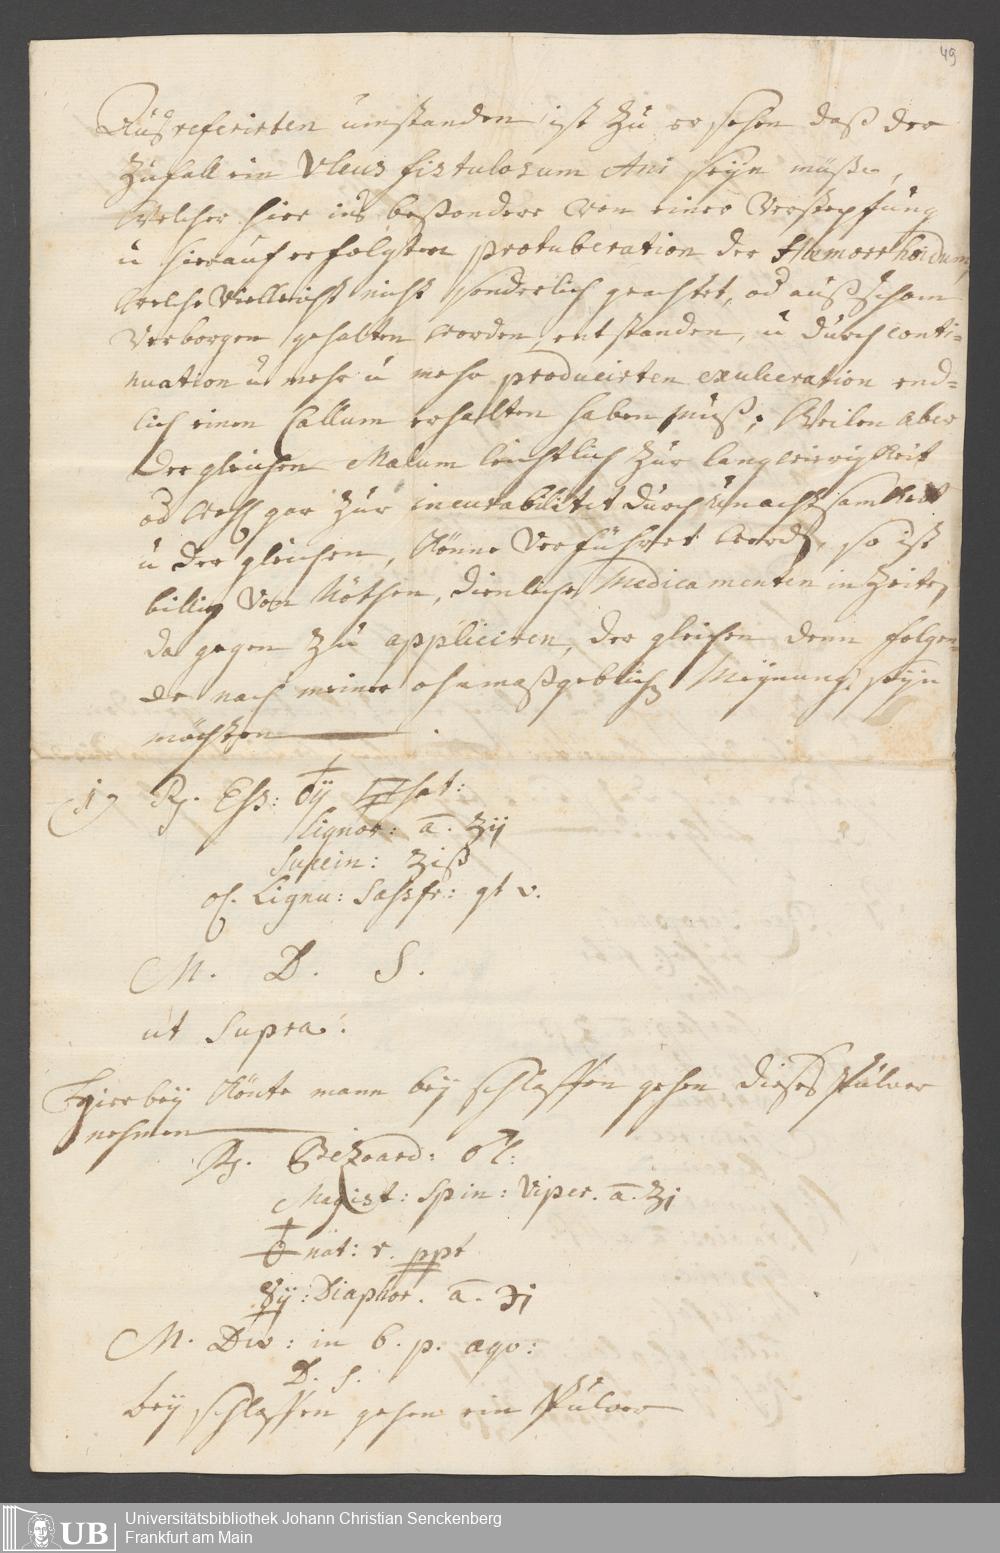 49
Auß referirten umständen ist zu ersehen daß der
Zufall ein Ulcus fistulosum Ani seyn müße,
Welcher hier ins besondere von einer Verstopfung
u hierauf erfolgten protuberation der Hæmorrhoidum,
welche Vielleicht nicht sonderlich geachtet, od auß scham
Verborgen gehalten worden entstanden, u durch conti-
nuation u mehr u mehr producirten exulceration end-
lich einen Callum erhalten haben muß; Weilen aber
der gleichen Malum leichtlich zur langwierigkeit
od wohl gar zur incurabilitet durch unachtsamkeit
u der gleichen, könne Verführet werd, so ist
billig Von Nöthen, dienliche Medicamenten in Zeiten
da gegen zu appliciren, der gleichen denn folgen-
de nach meiner ohnmaßgeblich Meynung, seyn
möchten
1) Rx. Ess:
Lignor: a. ʒij
Succin: ʒiß
ol. Lignu: Sassfr: gt v.
M. D. S.
ut Supra.
Hierbey könte mann bey schlaffen gehen dieses Pulver
nehmen
Rx. Bezoard: ♂l:
Magist: Spin: Viper. a. ʒj
nat: r. ppt
Diaphor. a. ℈j
M. Div: in 6. p. aqv:
D. S.
bey schlaffen gehen ein Pulver
UB
Universitätsbibliothek Johann Christian Senckenberg
Frankfurt am Main